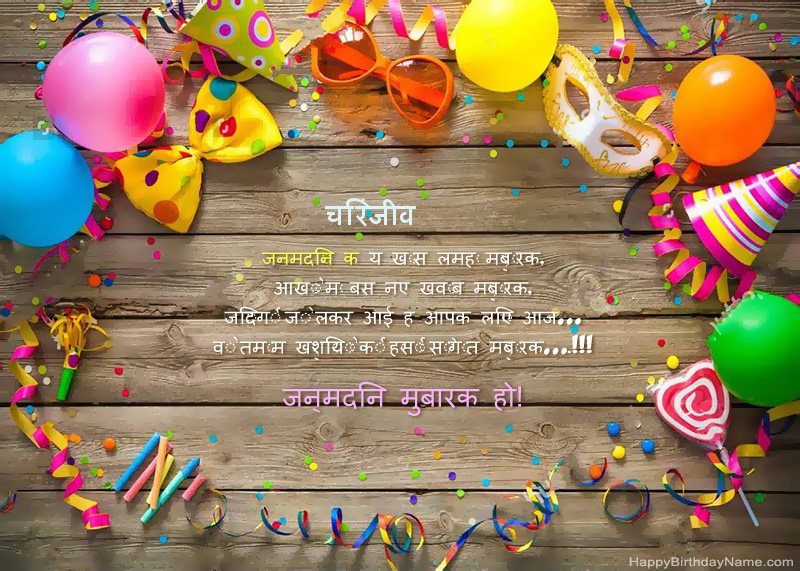 चरिंजीव
जनमदनि क य खास लमहा मबारक,
आखों में बसे नए खवाब मबारक,
जदिंगी जो लेकर आई ह आपक लएि आज...
वो तमाम खशयिों की हसीं सौगात मबारक...!!!
जन्मदनि मुबारक हो!
HappyBirthdayName.com